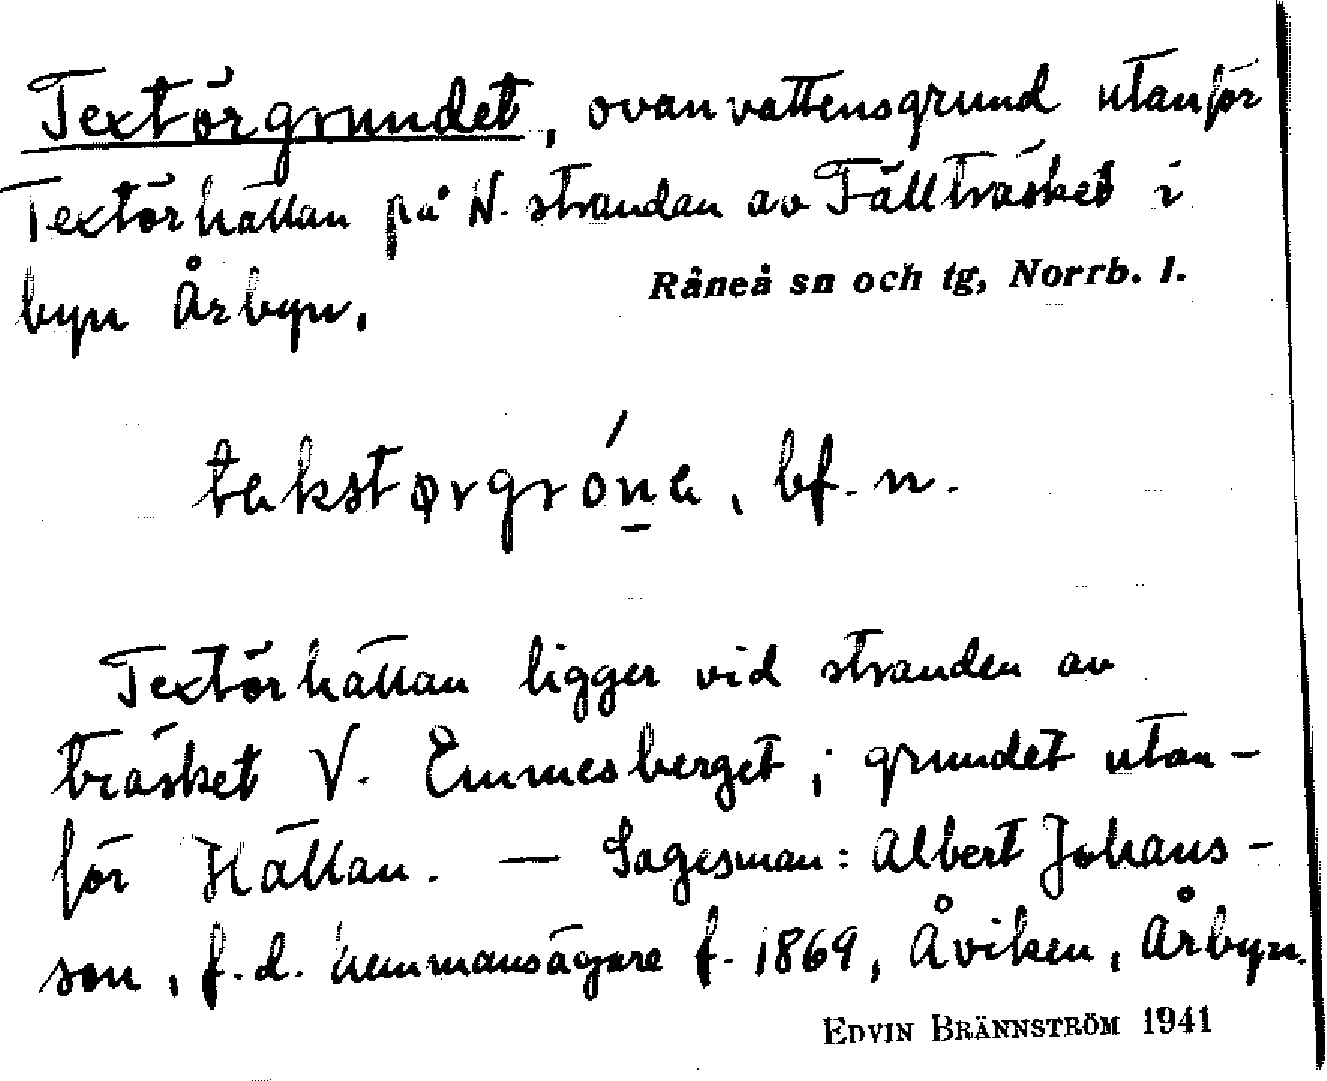 Textörgrundet, ovanvattensgrund utanför
Textörhällan på N. strandan av Fällträsket i
byn Årbyn.
Råneå sn och tg, Norrb. l.
tekstørgróna, bf. n.
Textörhällan ligger vid stranden av
träsket V. Emmesberget; grundet utan-
för Hällan. — Sagesman: Albert Johans-
son, f.d. hemmansägare f. 1869, Åviken, Årbyn.
EDVIN BRÄNNSTRÖM 1941